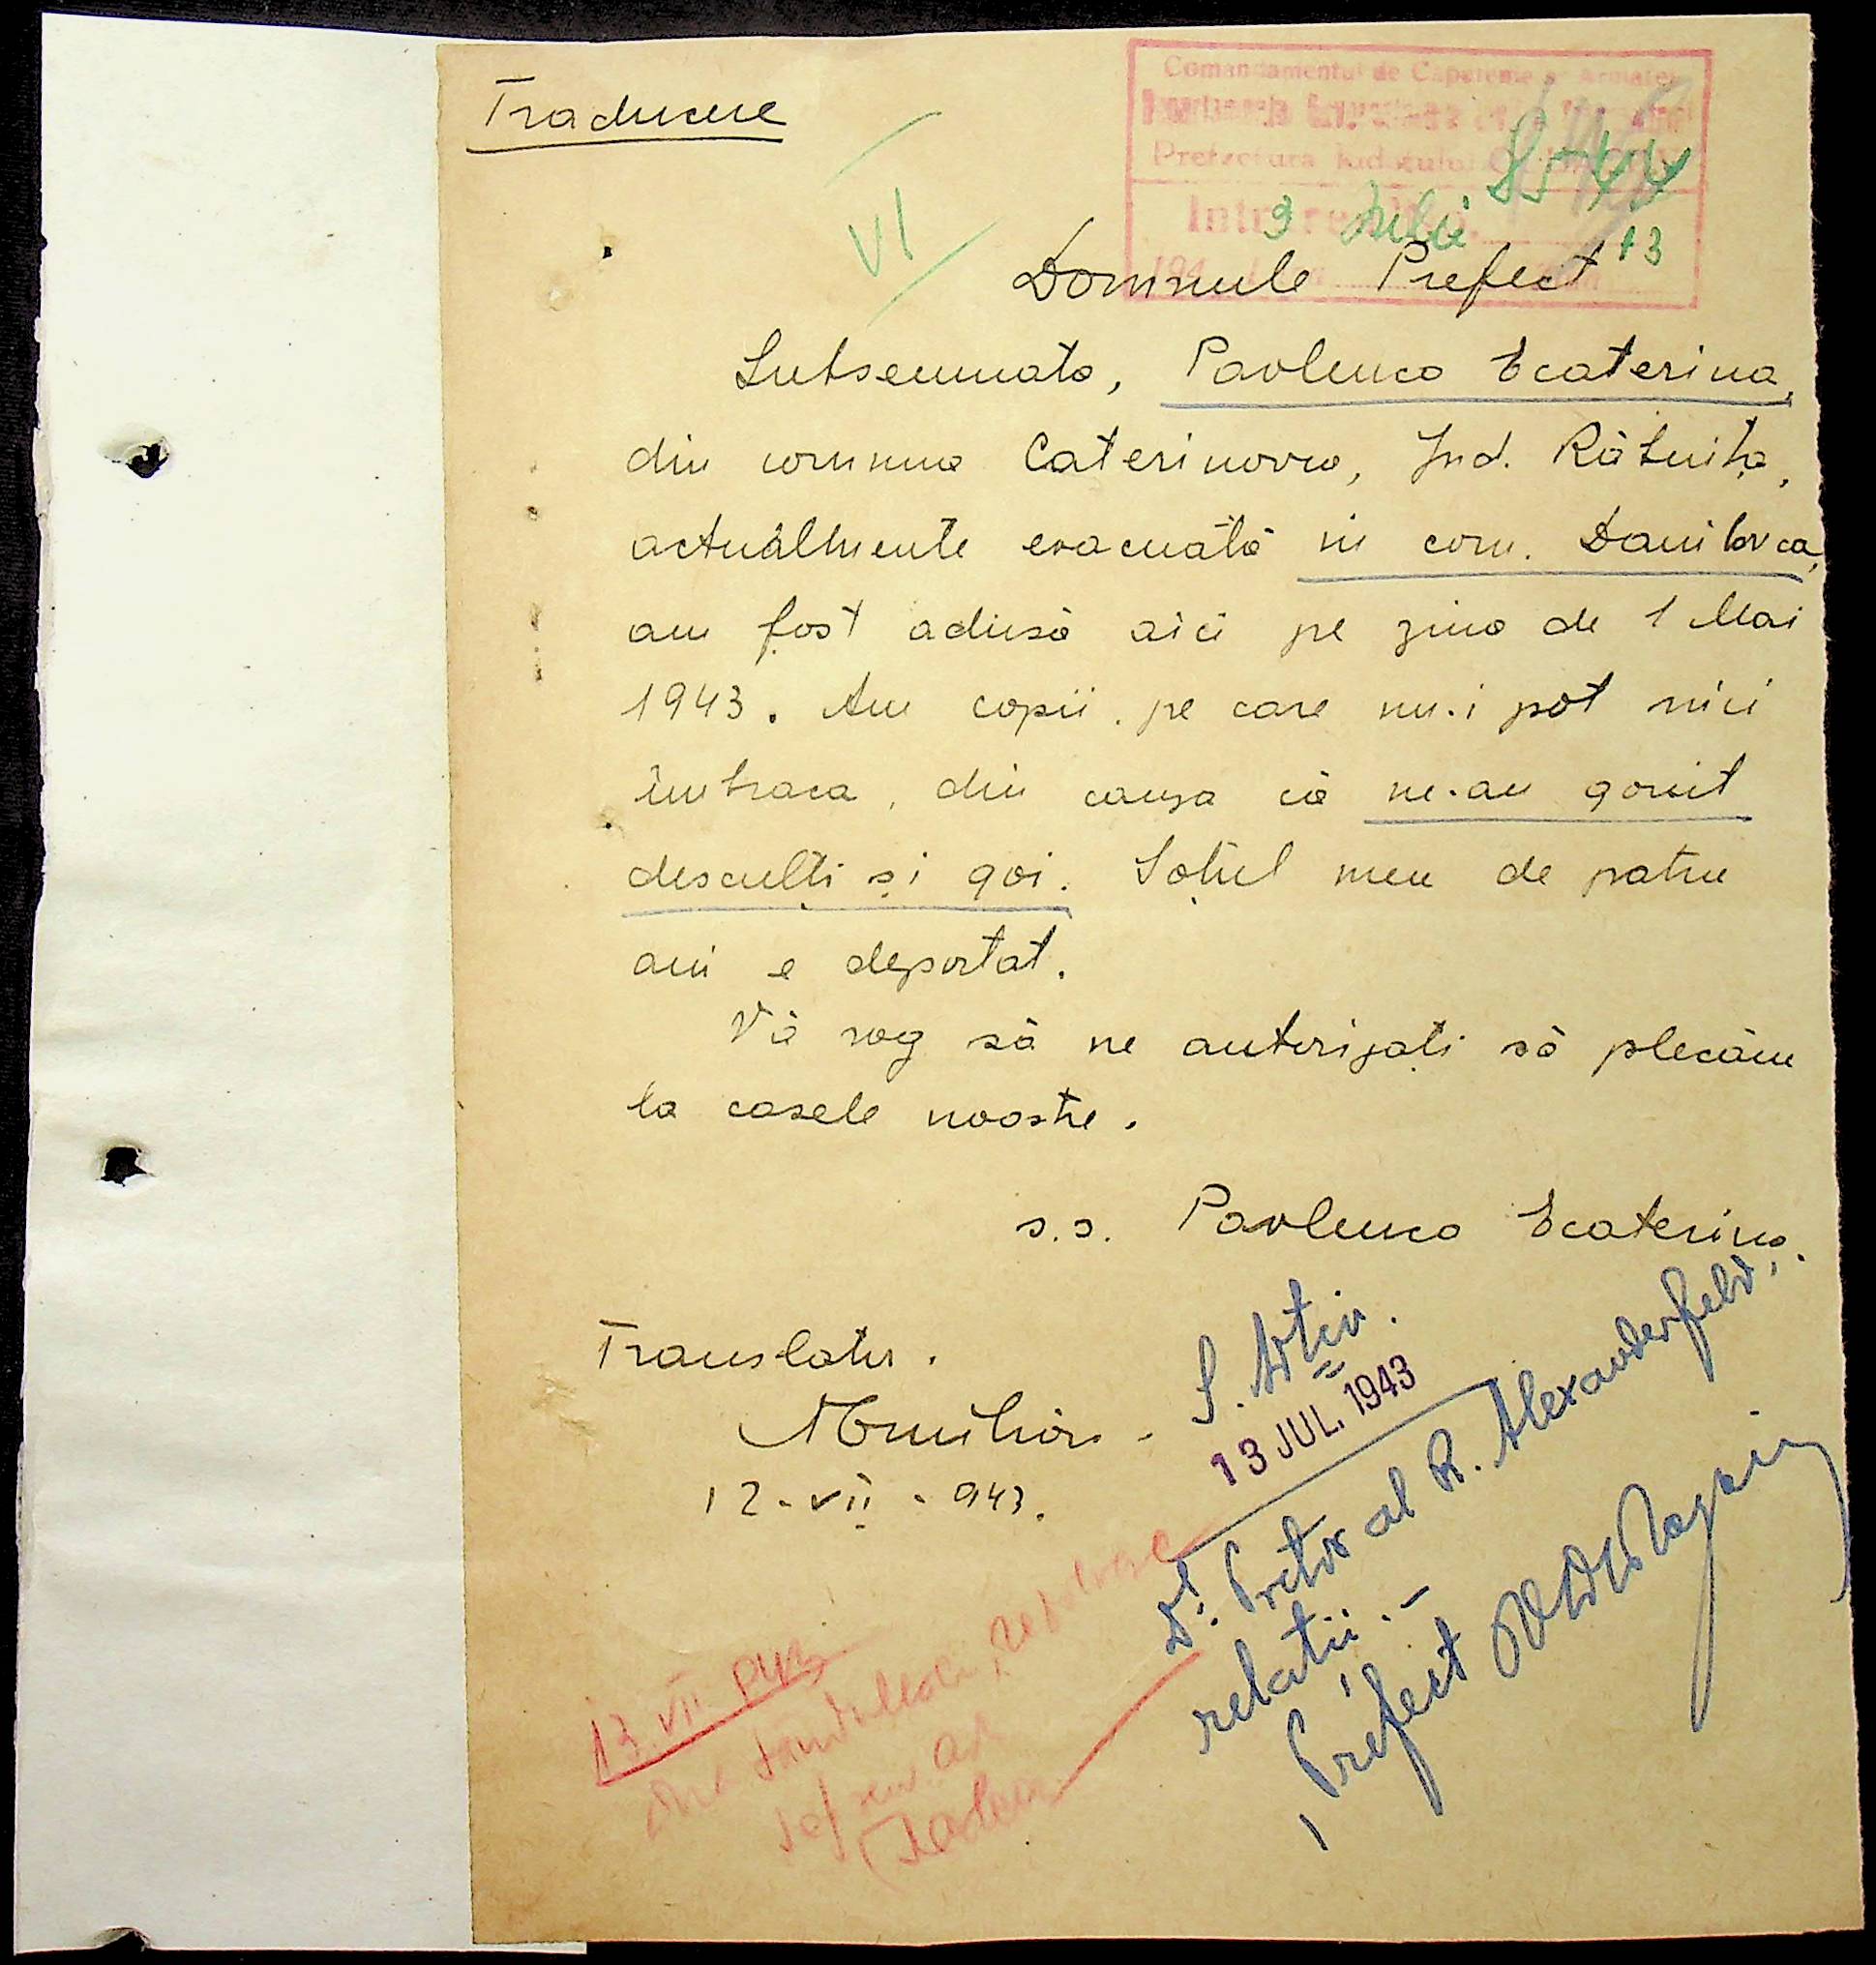 Traducere
Comandamentul de Capetenie al Armatei
Prefectura Judetului
Intrare
9 Iulie 43
VI
Domnule Prefect
Subsemnata, Pavlenco Ecaterina,
din comuna Caterinovca, Jud. Râbnița,
actualmente evacuată in com. Danilovca,
am fost adusă aici pe ziua de 1 Mai
1943. Am copii pe care nu-i pot nici
îmbraca, din cauza că ne-au gonit
desculți și goi. Soțul meu de patru
ani e deportat.
Vă rog să ne autorizați să plecăm
la casele noastre.
s.s. Pavlenco Ecaterina.
Translator.
12-VII-943.
13 JUL. 1943
Dl. Pretor al R. Alexanderfeld,
relatii.-
Prefect
13.VII 943